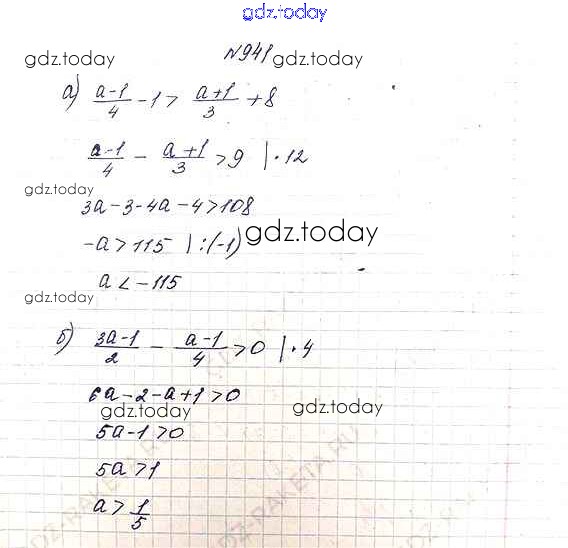 gdz.today
№941
gdz.today gdz.today
а) (a-1)/4 - 1 > (a+1)/3 + 8
(a-1)/4 - (a+1)/3 > 9 | · 12
gdz.today
3a-3-4a-4>108
-a > 115 | :(-1)
gdz.today
a < -115
gdz.today
б) (3a-1)/2 - (a-1)/4 > 0 | · 4
6a-2-a+1>0
gdz.today gdz.today
5a-1>0
5a>1
a > 1/5
GDZ-RAKETA.RU